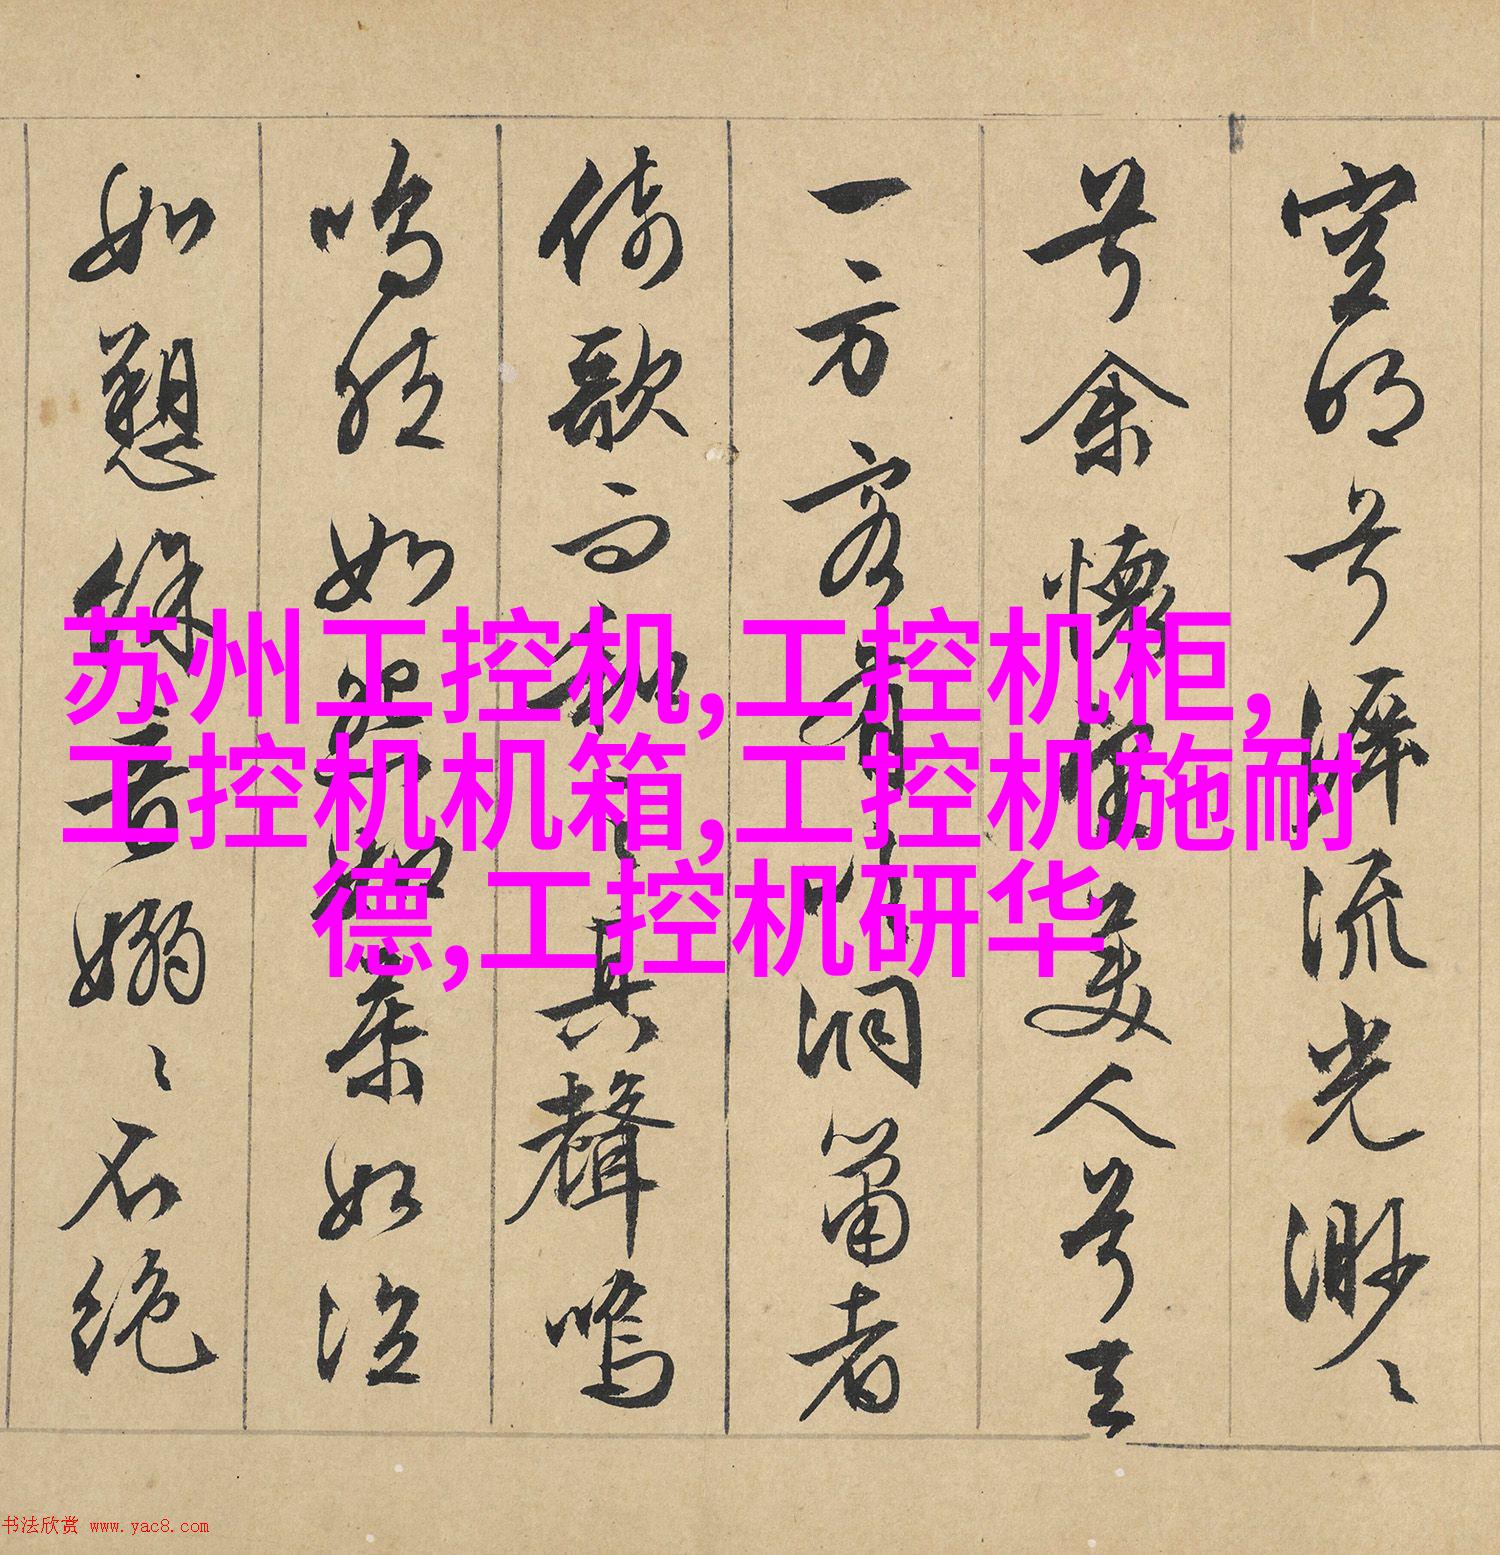 空明兮泝流光渺〻
兮余懷望美人兮天
一方客有吹洞簫者
倚歌而和之其聲嗚
嗚然如怨如慕如泣
如愬餘音嫋〻不絕
苏州工控机,工控机柜,
工控机机箱,工控机施耐
德,工控机研华
书法欣赏 www.yac8.com